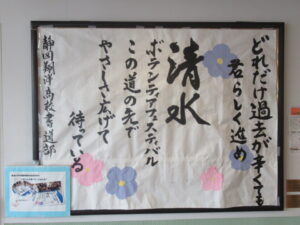 どれだけ過去が辛くても
君らしく進め
清水
ボランティアフェスティバル
この道の先で
やさしさ広げて
待っている
静岡翔洋高校書道部